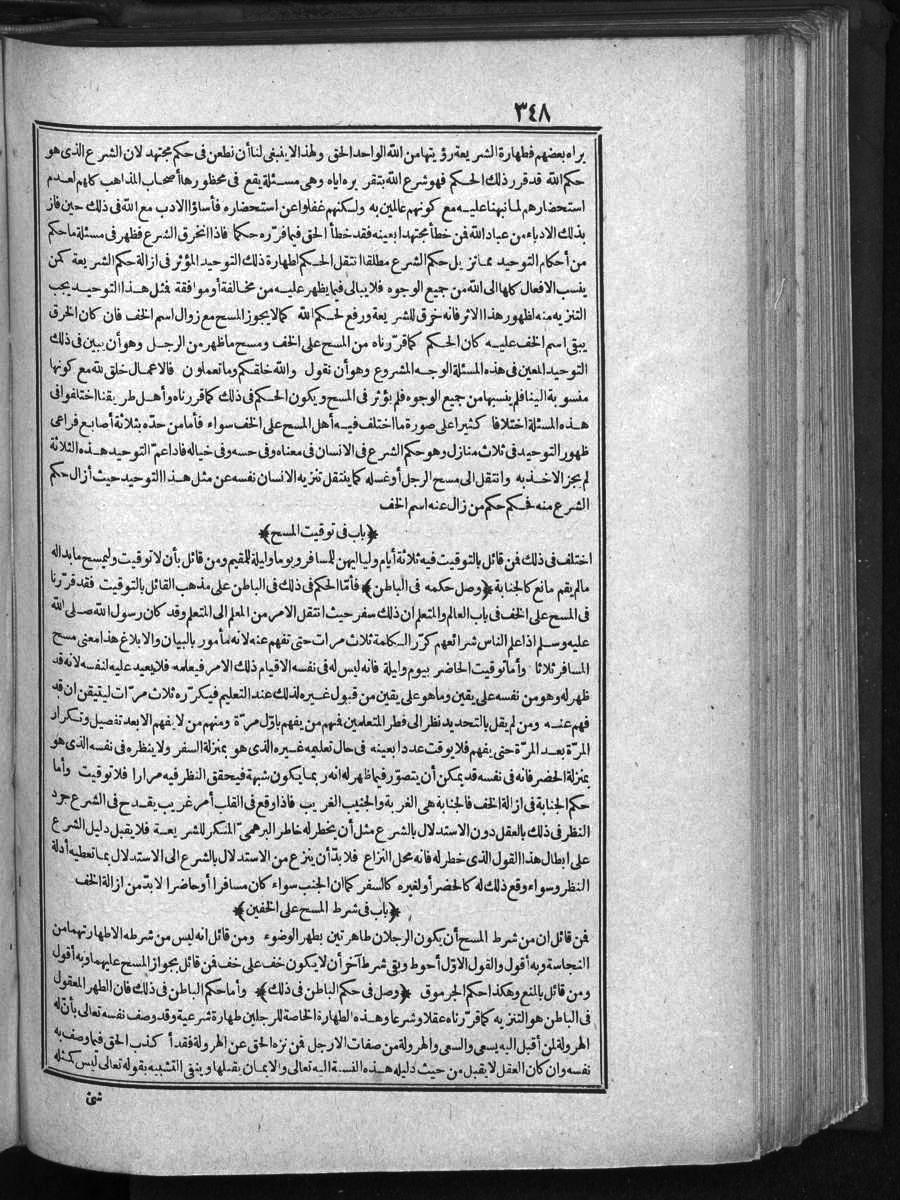 ٣٤٨
يراه بعضهم فطهارة الشريعة رؤيتها من الله الواحد الحق ولهذا لا ينبغي لنا أن نطعن فى حكم مجتهد لان الشرع الذى هو
حكم الله قد قرر ذلك الحكم فهو شرع الله بتقريره اياه وهى مسئلة يقع فى محظورها أصحاب المذاهب كلهم لعدم
استحضارهم لما نبهنا عليه مع كونهم عالمين به ولكنهم غفلوا عن استحضاره فأساؤا الادب مع الله فى ذلك حين فاز
بذلك الادباء من عباد الله فمن خطأ مجتهدا بعينه فقد خطأ الحق فيما قرره حكما فاذا انخرق الشرع فظهر فى مسئلة ما حكم
من أحكام التوحيد مما يزيل حكم الشرع مطلقا انتقل الحكم لطهارة ذلك التوحيد المؤثر فى ازالة حكم الشريعة كمن
ينسب الافعال كلها الى الله من جميع الوجوه فلا يبالى فيما يظهر عليه من مخالفة أو موافقة فمثل هذا التوحيد يجب
التنزيه منه لظهور هذا الاثر فانه خرق للشريعة ورفع لحكم الله كما لا يجوز المسح مع زوال اسم الخف فان كان الخرق
يبقى اسم الخف عليه كان الحكم كما قرّرناه من المسح على الخف ومسح ما ظهر من الرجل وهو أن يبين فى ذلك
التوحيد المعين فى هذه المسئلة الوجه المشروع وهو أن نقول والله خلقكم وما تعملون فالاعمال خلق لله مع كونها
منسوبة الينا فلم ينسبها من جميع الوجوه فلم يؤثر فى المسح ويكون الحكم فى ذلك كما قررناه وأهل طريقنا اختلفوا فى
هذه المسئلة اختلافا كثيرا على صورة ما اختلف فيه أهل المسح على الخف سواء فأما من حدّه بثلاثة أصابع فراعى
ظهور التوحيد فى ثلاث منازل وهو حكم الشرع فى الانسان فى معناه وفى حسه وفى خياله فاذا عمّ التوحيد هذه الثلاثة
لم يجز الاخذ به وانتقل الى مسح الرجل أو غسله كما ينتقل تنزيه الانسان نفسه عن مثل هذا التوحيد حيث أزال حكم
الشرع منه فحكمه حكم من زال عنه اسم الخف
﴿باب فى توقيت المسح﴾
اختلف فى ذلك فمن قائل بالتوقيت فيه ثلاثة أيام ولياليهن للمسافر ويوما وليلة للمقيم ومن قائل بأن لا توقيت وليمسح ما بدا له
ما لم يقم مانع كالجنابة ﴿وصل حكمه فى الباطن﴾ فأمّا الحكم فى ذلك فى الباطن على مذهب القائل بالتوقيت فقد قرّرنا
فى المسح على الخف فى باب العالم والمتعلم ان ذلك سفر حيث انتقل الامر من المعلم الى المتعلم وقد كان رسول الله صلى الله
عليه وسلم اذا علم الناس شرائعهم كرّر الكلمة ثلاث مرات حتى تفهم عنه لانه مأمور بالبيان والابلاغ هذا معنى مسح
المسافر ثلاثا وأما توقيت الحاضر بيوم وليلة فانه ليس له فى نفسه الا قيام ذلك الامر فيعلمه فلا يعيد عليه لنفسه لانه قد
ظهر له وهو من نفسه على يقين وما هو على يقين من قبول غيره لذلك عند التعليم فيكرّره ثلاث مرّات ليتيقن ان قد
فهم عنه ومن لم يقل بالتحديد نظر الى فطر المتعلمين فمنهم من يفهم باوّل مرّة ومنهم من لا يفهم الا بعد تفصيل وتكرار
المرّة بعد المرّة حتى يفهم فلا يوقت عددا بعينه فى حال تعليمه غيره الذى هو بمنزلة السفر ولا ينظره فى نفسه الذى هو
بمنزلة الحضر فانه فى نفسه قد يمكن أن يتصوّر فيما ظهر له انه ربما يكون شبهة فيحقق النظر فيه مرارا فلا توقيت وأما
حكم الجنابة فى ازالة الخف فالجنابة هى الغربة والجنيب الغريب فاذا وقع فى القلب أمر غريب يقدح فى الشرع جرد
النظر فى ذلك بالعقل دون الاستدلال بالشرع مثل أن يخطر له خاطر البرهمىّ المنكر للشريعة فلا يقبل دليل الشرع
على ابطال هذا القول الذى خطر له فانه محل النزاع فلا بدّ أن ينزع من الاستدلال بالشرع الى الاستدلال بما تعطيه أدلة
النظر وسواء وقع ذلك له كالحضر أو لغيره كالسفر كما ان الجنب سواء كان مسافرا أو حاضرا لا بدّ من ازالة الخف
﴿باب فى شرط المسح على الخفين﴾
فمن قائل ان من شرط المسح أن يكون الرجلان طاهرتين بطهر الوضوء ومن قائل انه ليس من شرطه الا طهارتهما من
النجاسة وبه أقول والقول الاوّل أحوط وبقى شرط آخر أن لا يكون خف على خف فمن قائل بجواز المسح عليهما وبه أقول
ومن قائل بالمنع وهكذا حكم الجرموق ﴿وصل فى حكم الباطن فى ذلك﴾ وأما حكم الباطن فى ذلك فان الطهر المعقول
فى الباطن هو التنزيه كما قرّرناه عقلا وشرعا وهذه الطهارة الخاصة للرجلين طهارة شرعية وقد وصف نفسه تعالى بأنّ له
الهرولة لمن أقبل اليه يسعى والسعى والهرولة من صفات الارجل فمن نزه الحق عن الهرولة فقد أكذب الحق فيما وصف به
نفسه وان كان العقل لا يقبل من حيث دليله هذه النسبة اليه تعالى والايمان يقبلها وينفى التشبيه بقوله تعالى ليس كمثله
شئ